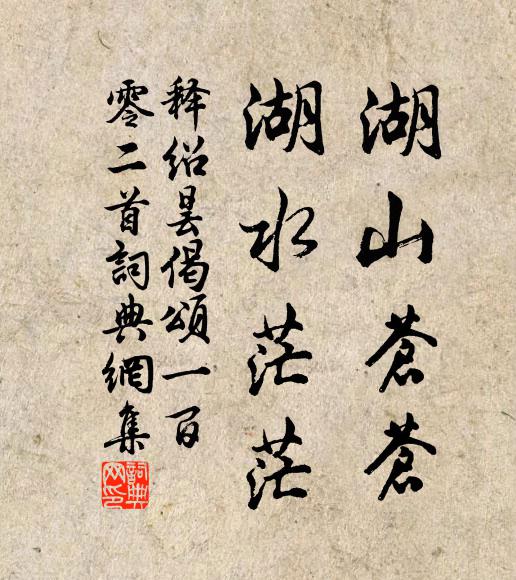 湖山蒼蒼
湖水茫茫
釋紹曇偈頌一百
零二首詞典網集
詞典
网印